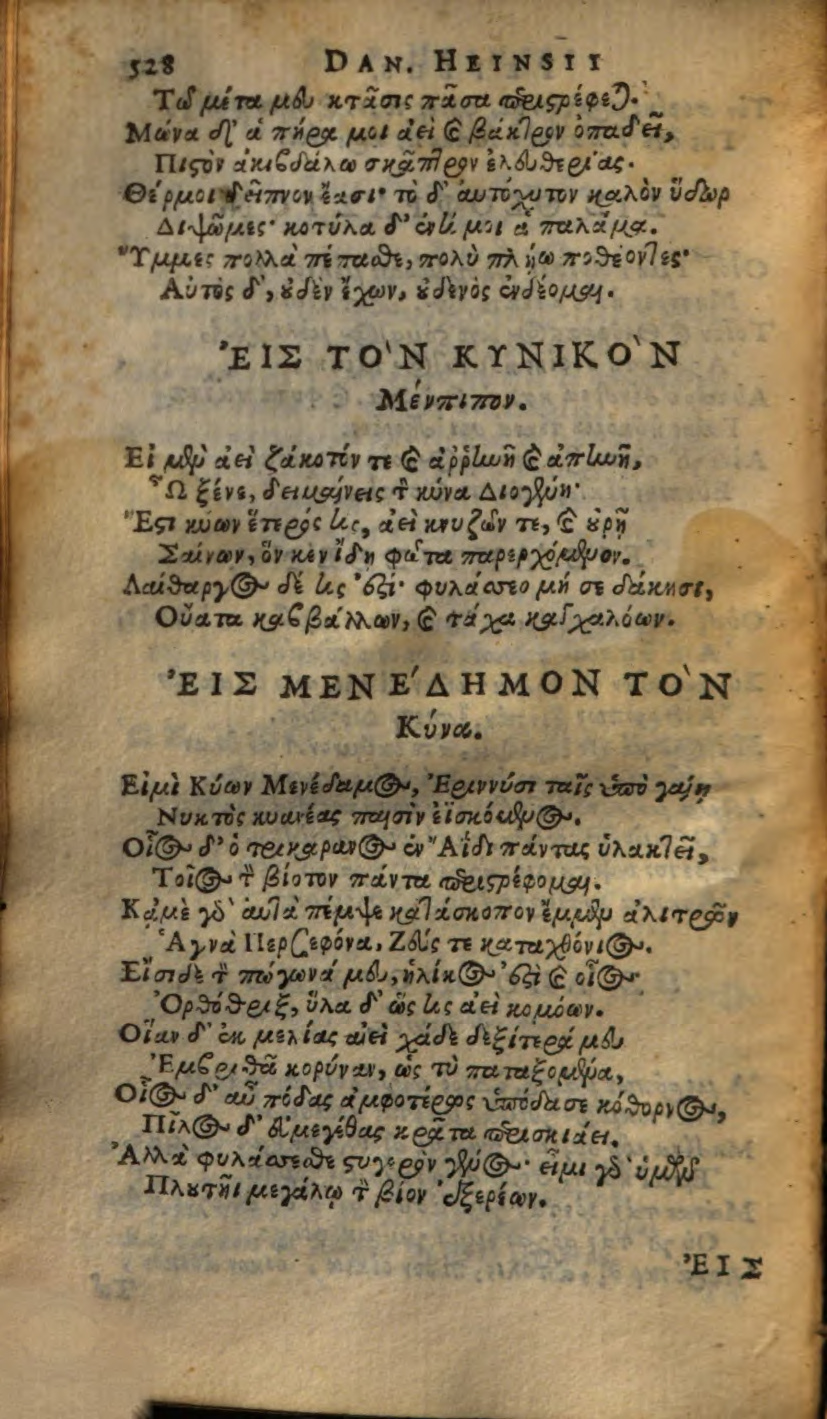 528 DAN. HEINSII
Τῶ μέτα μευ κτᾶσις πᾶσα περιστρέφεται.
Μώνα δ' ἁ πήρα μοι ἀεὶ καὶ βάκτρον ὀπαδεῖ,
Πιστὸν ἀκιβδάλω σκᾶπτρον ἐλευθερίας.
Θέρμοι δεῖπνον ἔασι· τὸ δ' αὐτόχυτον καλὸν ὕδωρ
Διψῶμες· κοτύλα δ' ἐντί μοι ἁ παλάμα.
Ὕμμες πολλὰ πέπασθε, πολὺ πλήω ποθέοντες·
Αὐτὸς δ', οὐδὲν ἔχων, οὐδενὸς ἐνδέομαι.
ἘΙΣ ΤΟ`Ν ΚΥΝΙΚΟ`Ν
Μένπιπον.
Εἰ μὲν ἀεὶ ζάκοτίν τε καὶ ἀῤῥηνῆ καὶ ἀπηνῆ,
Ὦ ξένε, δειμαίνεις τὸν κύνα Διογένη·
Ἔστι κύων ἕτερός τις, ἀεὶ κνυζῶν τε, καὶ οὐρῇ
Σαίνων, ὅν κεν ἴδῃ φῶτα παρερχόμενον.
Λαίθαργος δέ τις ἐστί· φυλάσσεο μή σε δάκησι,
Οὔατα καββάλλων, καὶ τάχα καγχαλόων.
ἘΙΣ ΜΕΝΕ΄ΔΗΜΟΝ ΤΟ`Ν
Κύνα.
Εἰμὶ Κύων Μενέδαμος, Ἐριννύσι ταῖς ὑπὸ γαίῃ
Νυκτὸς κυανέας παισὶν ἐϊσκόμενος.
Οἷος δ' ὁ τρικάρανος ἐν Ἄϊδι πάντας ὑλακτεῖ,
Τοῖος τὸν βίοτον πάντα περιστρέφομαι.
Κἀμὲ γὰρ αὐτὰ πέμψε κατάσκοπον ἔμμεν ἀλιτρῶν
Ἁγνὰ Περσεφόνα, Ζεύς τε καταχθόνιος.
Εἴσιδε τὸν πώγωνά μευ, ἡλίκος ἐστὶ καὶ οἷος·
Ὀρθόθριξ, ὕλα δ' ὥς τις ἀεὶ κομόων.
Οἵαν δ' ἐκ μελίας αἰεὶ χάδε δεξίτερά μευ
Ἐμβριθᾶ κορύναν, ὡς τὺ παταξομένα,
Οἷος δ' αὖ πόδας ἀμφοτέρους ὑπόδασε κόθορνος,
Πῖλος δ' εὐμεγέθας κρᾶτα περισκιάει.
Ἀλλὰ φυλάσσεσθε στυγερὸν γένος· εἶμι γὰρ ὑμέων
Πλουτῆϊ μεγάλῳ τὸν βίον ἐξερέων.
ἘΙΣ